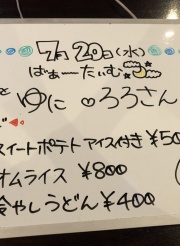 7月20日(水)
ばぁーたいむ
と ゆに ♥ろろさん
スイートポテト アイス付き ¥50
オムライス ¥800
冷やしうどん ¥400